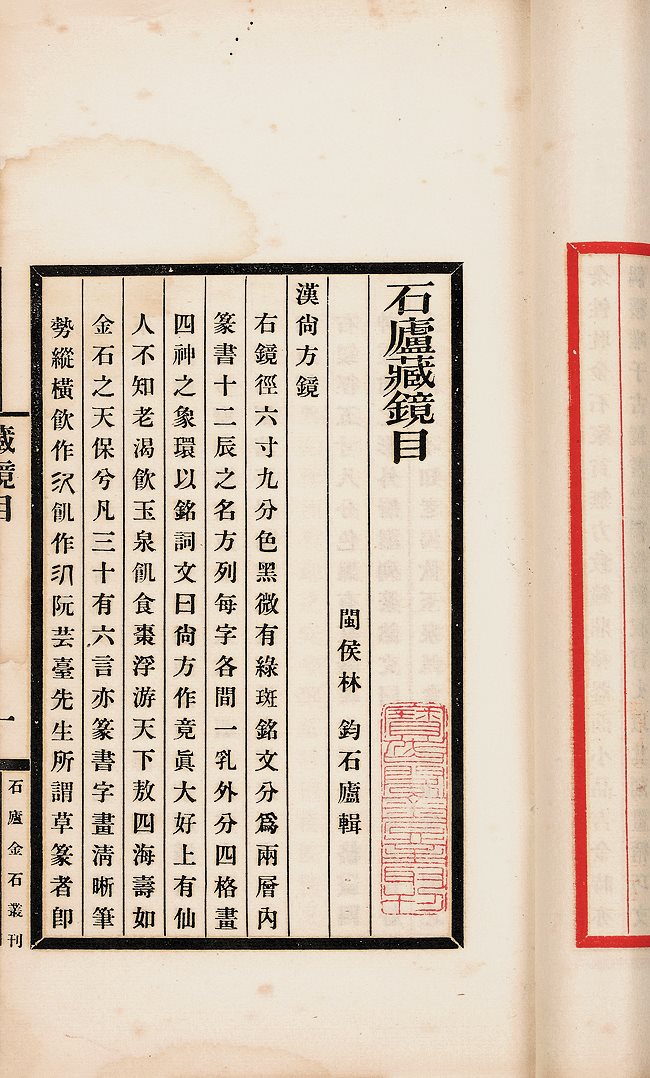 石廬藏鏡目
閩侯林 鈞石廬輯
漢尙方鏡
右鏡徑六寸九分色黑微有綠斑銘文分爲兩層內
篆書十二辰之名方列每字各間一乳外分四格畫
四神之象環以銘詞文曰尙方作竟眞大好上有仙
人不知老渴飮玉泉飢食棗浮游天下敖四海壽如
金石之天保兮凡三十有六言亦篆書字畫淸晰筆
勢縱橫飮作 飢作 阮芸臺先生所謂草篆者卽
藏鏡目
一
石廬金石叢刊